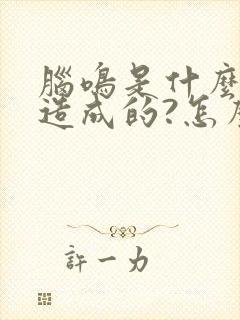 腦鳴是什麼
造成的?怎
許一力